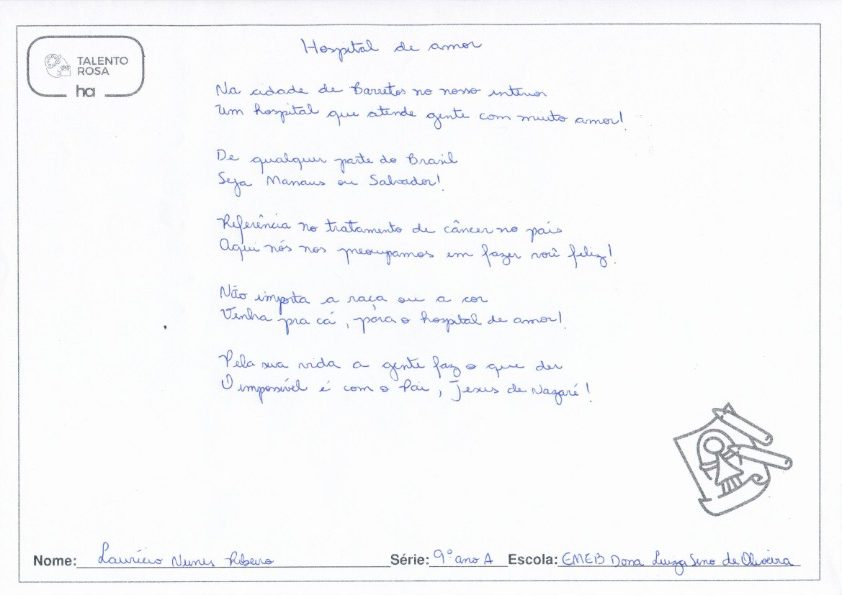 TALENTO
ROSA
ha
Hospital de amor
Na cidade de Barretos no nosso interior
Um hospital que atende gente com muito amor!
De qualquer parte do Brasil
Seja Manaus ou Salvador!
Referência no tratamento de câncer no país
Aqui nós nos preocupamos em fazer você feliz!
Não importa a raça ou a cor
Venha pra cá, para o hospital de amor!
Pela sua vida a gente faz o que der
O impossível é com o Pai, Jesus de Nazaré!
Nome: Laurício Nunes Ribeiro Série: 9º ano A Escola: EMEB Dona Luiza de Oliveira